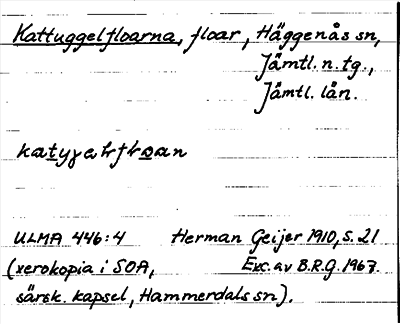 Kattuggelfloarna, floar, Häggenås sn,
Jämtl. n. tg.,
Jämtl. län.
ULMA 446:4 Herman Geijer 1910, S. 21
(xerokopia i SOA, Exc. av B.R.G. 1967.
särsk. kapsel, Hammerdals sn).